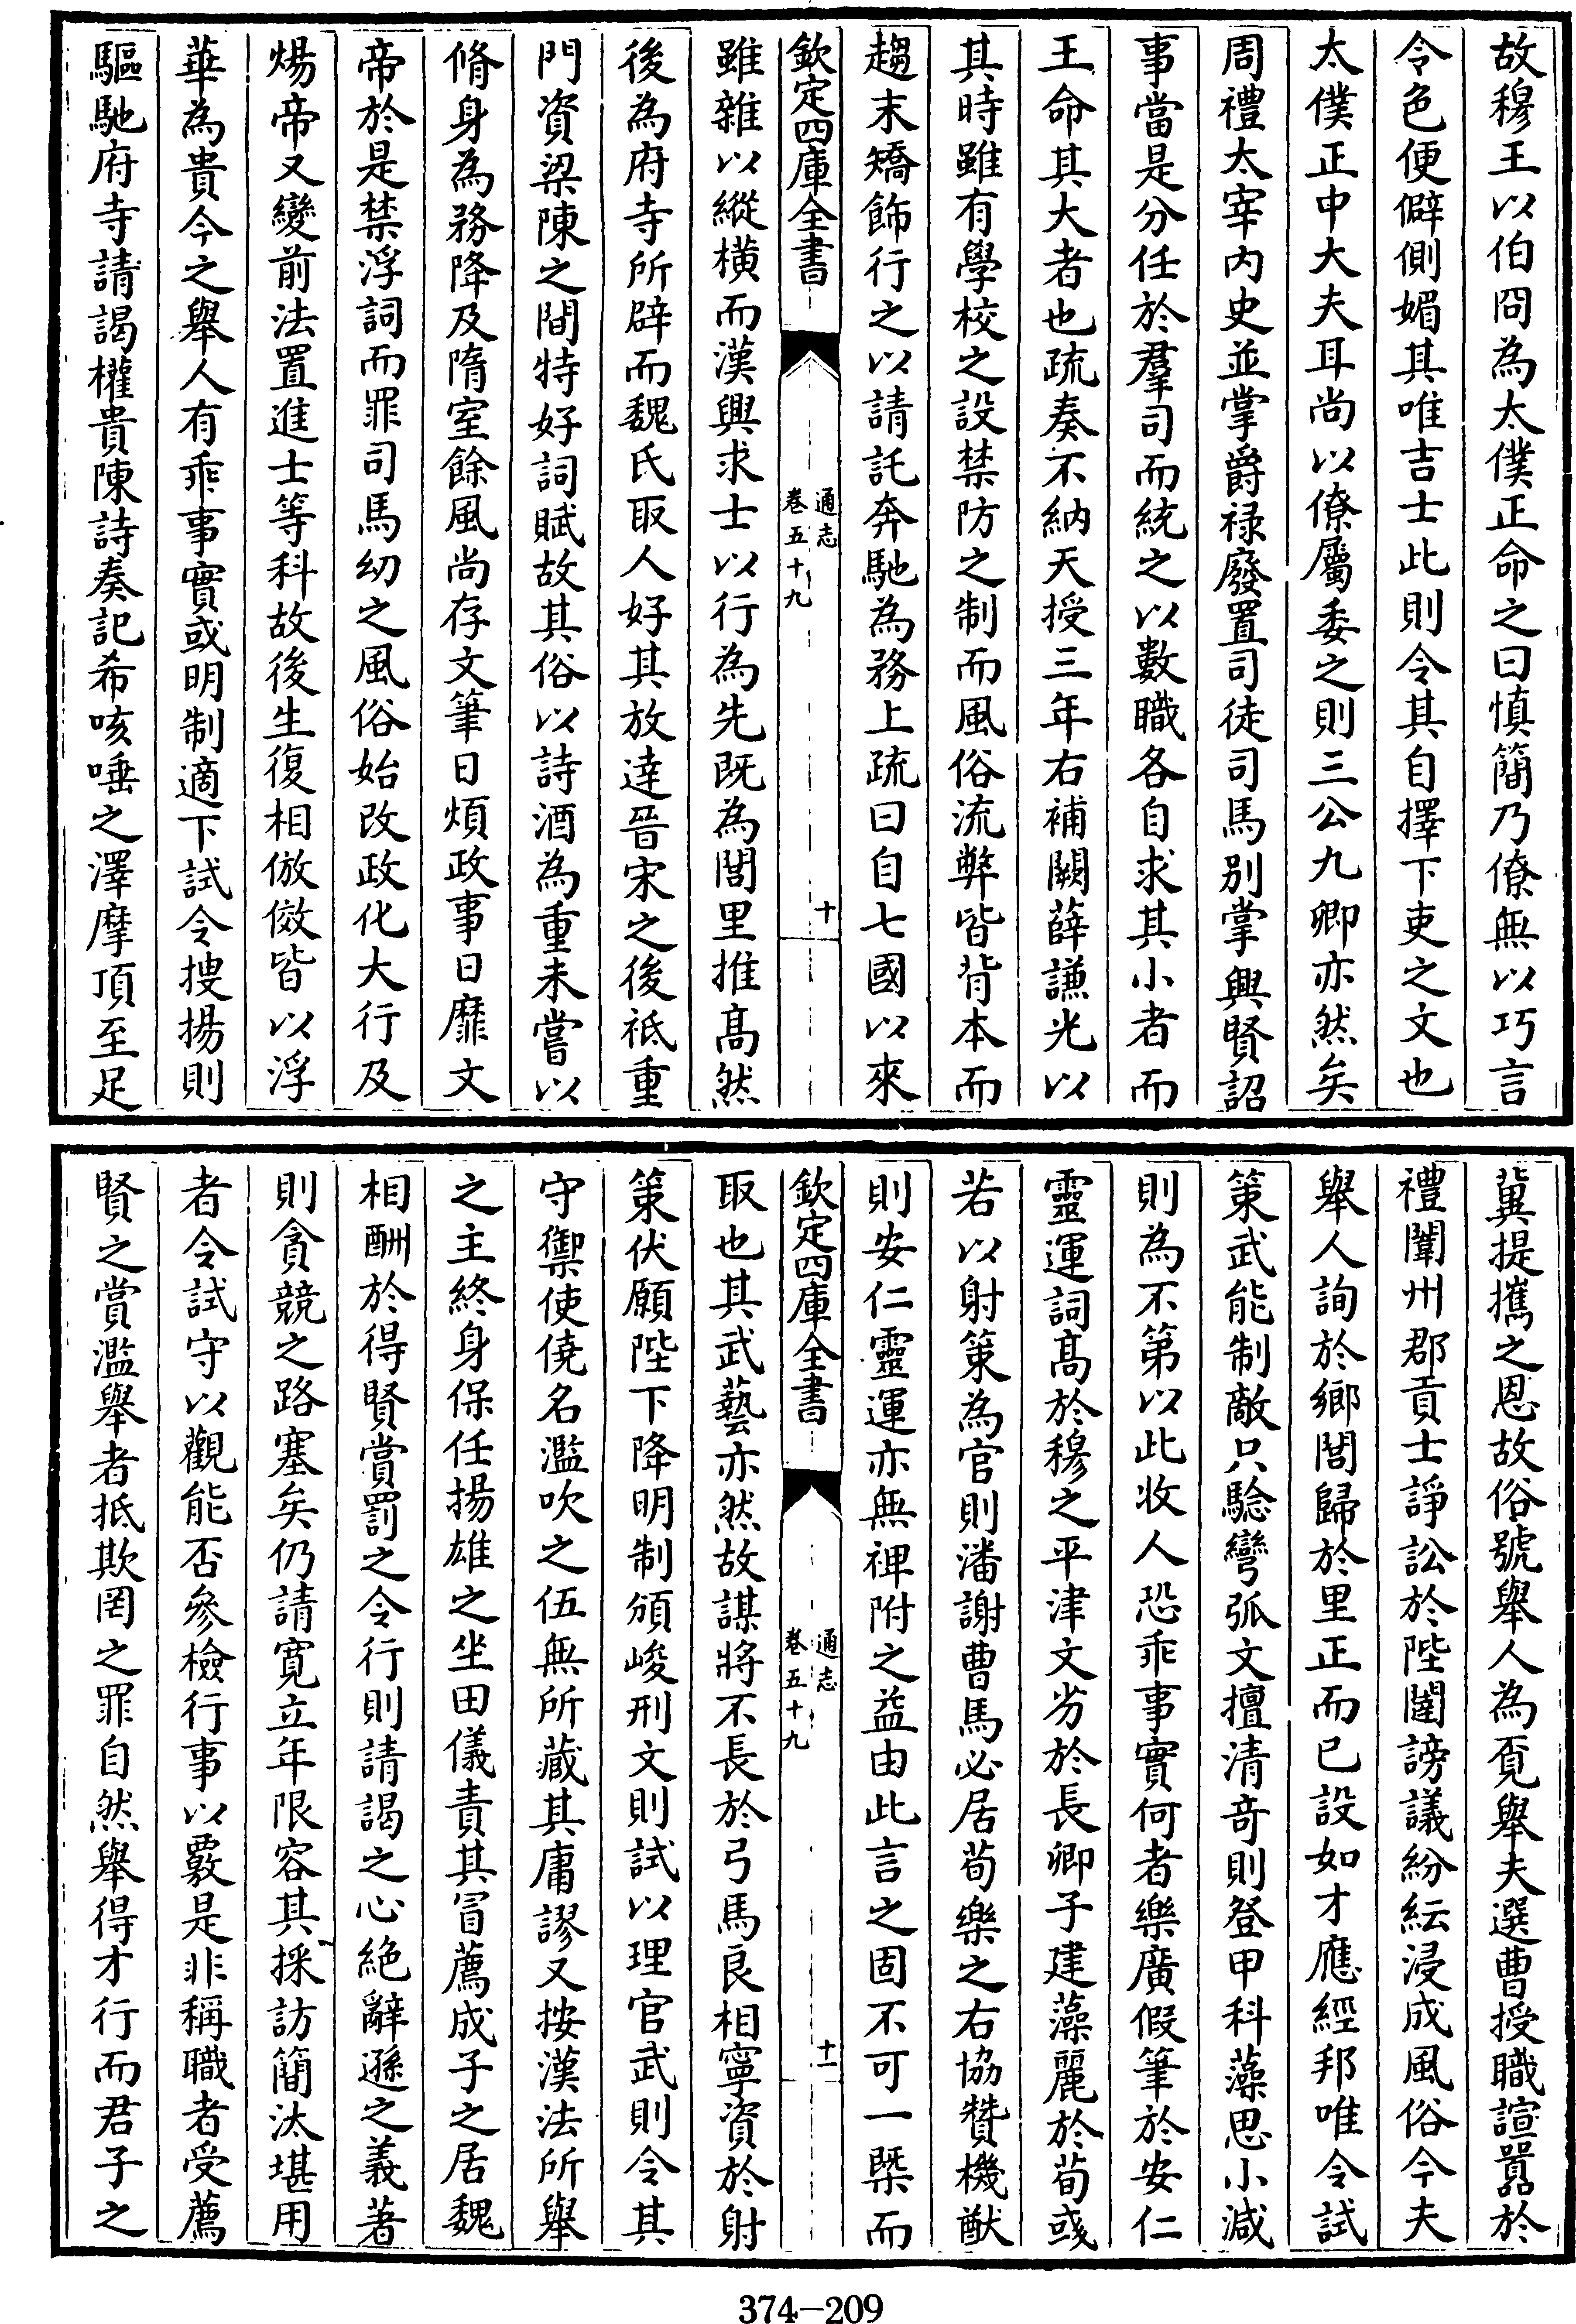 故穆王以伯冏為太僕正命之曰慎簡乃僚無以巧言
令色便僻側媚其唯吉士此則令其自擇下吏之文也
太僕正中大夫耳尚以僚屬委之則三公九卿亦然矣
周禮太宰内史並掌爵禄廢置司徒司馬别掌興賢詔
事當是分任於羣司而統之以數職各自求其小者而
王命其大者也疏奏不納天授三年右補闕薛謙光以
其時雖有學校之設禁防之制而風俗流弊皆背本而
趨末矯飾行之以請託奔馳為務上疏曰自七國以來
欽定四庫全書
通志
卷五十九
十
雖雜以縱横而漢興求士以行為先既為閭里推髙然
後為府寺所辟而魏氏取人好其放逹晉宋之後祗重
門資梁陳之間特好詞賦故其俗以詩酒為重未嘗以
脩身為務降及隋室餘風尚存文筆日煩政事日靡文
帝於是禁浮詞而罪司馬㓜之風俗始改政化大行及
煬帝又變前法置進士等科故後生復相倣傚皆以浮
華為貴今之舉人有乖事實或明制適下試令搜揚則
驅馳府寺請謁權貴陳詩奏記希咳唾之澤摩頂至足
冀提攜之恩故俗號舉人為覔舉夫選曹授職諠囂於
禮闈州郡貢士諍訟於陛闥謗議紛紜浸成風俗今夫
舉人詢於鄉閭歸於里正而已設如才應經邦唯令試
策武能制敵只騐彎弧文擅清奇則登甲科藻思小減
則為不第以此收人恐乖事實何者樂廣假筆於安仁
靈運詞髙於穆之平津文劣於長卿子建藻麗於荀彧
若以射策為官則潘謝曹馬必居荀樂之右協贊機猷
則安仁靈運亦無裨附之益由此言之固不可一槩而
欽定四庫全書
通志
卷五十九
十一
取也其武藝亦然故謀將不長於弓馬良相寧資於射
策伏願陛下降明制頒峻刑文則試以理官武則令其
守禦使僥名濫吹之伍無所藏其庸謬又按漢法所舉
之主終身保任揚雄之坐田儀責其冒薦成子之居魏
相酬於得賢賞罰之令行則請謁之心絶辭遜之義著
則貪競之路塞矣仍請寛立年限容其採訪簡汰堪用
者令試守以觀能否參檢行事以覈是非稱職者受薦
賢之賞濫舉者抵欺罔之罪自然舉得才行而君子之
374-209